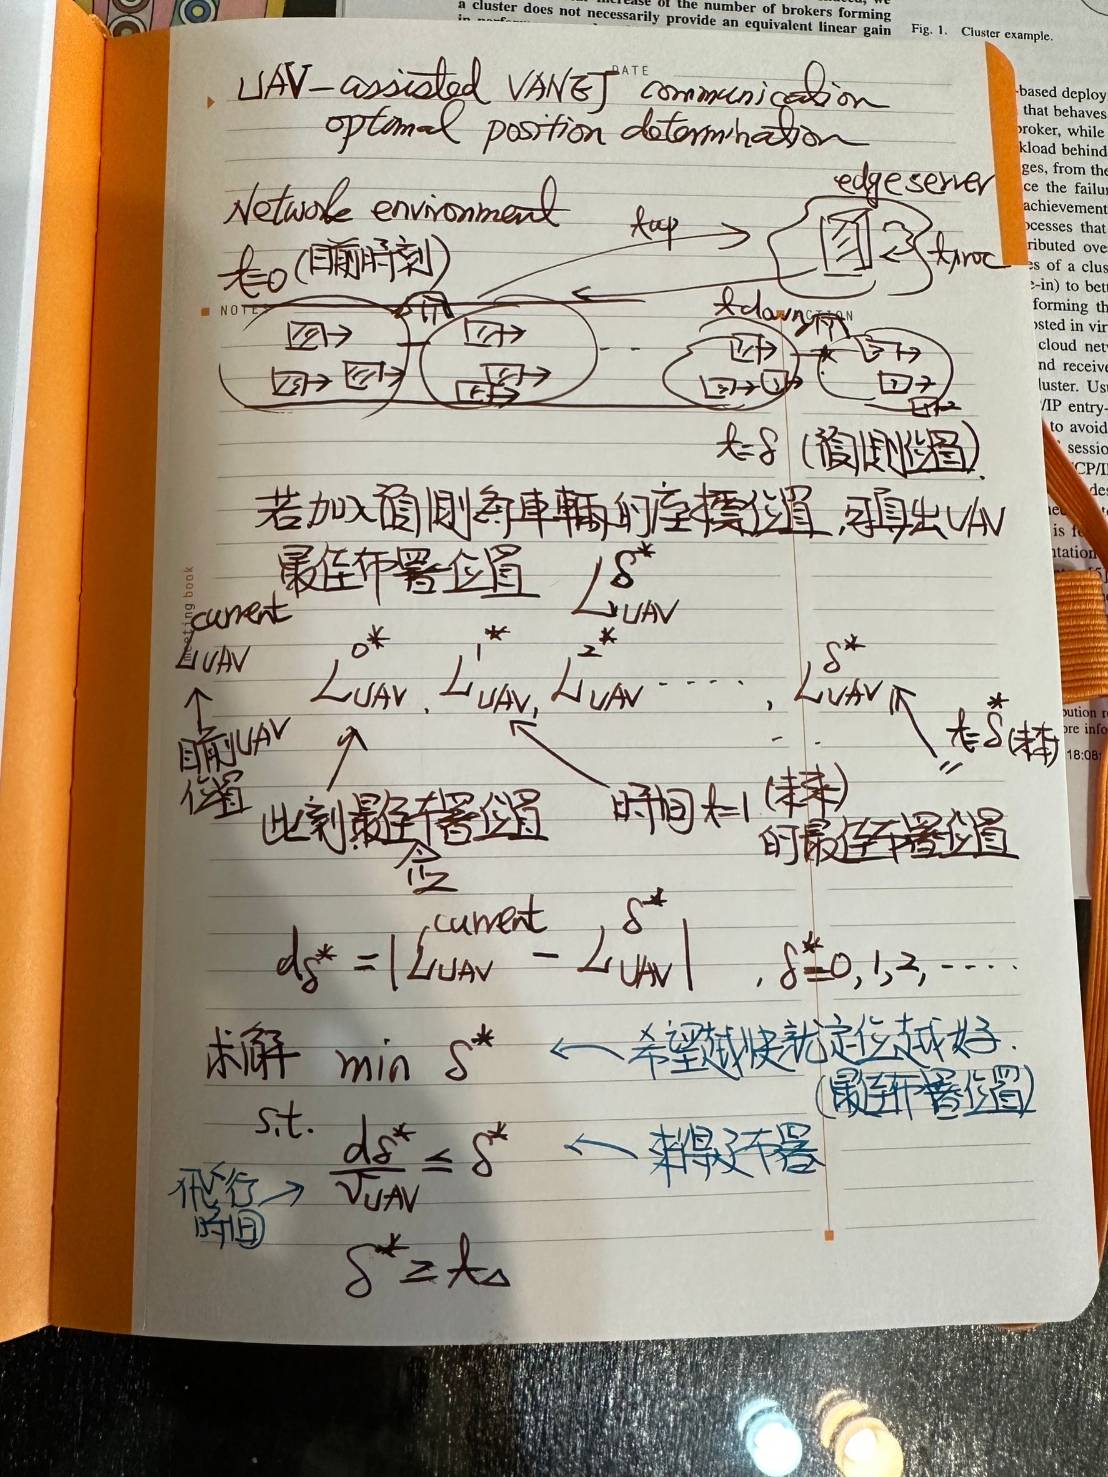 a cluster does not necessarily provide an equivalent linear gain
Fig. 1. Cluster example.
DATE
UAV-assisted VANET communication
optimal position determination
Network environment
edge server
t=0 (目前時刻)
tup
tproc
NOTE
tdown
t=δ (預測位置)
若加入預測各車輛的座標位置,可算出UAV
最佳布署位置 L_UAV^δ*
meeting book
L_UAV^current
L_UAV^0*, L_UAV^1*, L_UAV^2* ....., L_UAV^δ*
目前UAV位置
此刻最佳布署位置
時間t=1 (未來)
的最佳布署位置
t=δ* (未來)
令
d_δ* = |L_UAV^current - L_UAV^δ*|, δ*=0,1,2,....
求解 min δ* ← 希望越快就定位越好.
(最佳布署位置)
s.t. d_δ*/V_UAV ≤ δ* ← 來得及布署
飛行時間 →
δ* ≥ t_Δ
-based deploy
that behaves
broker, while
kload behind
ges, from the
ce the failu
achievement
ocesses that
ributed over
es of a clus
e-in) to bett
forming th
osted in vir
cloud net
nd receive
luster. Us
/IP entry-
to avoid
sessio
CP/I
18:08